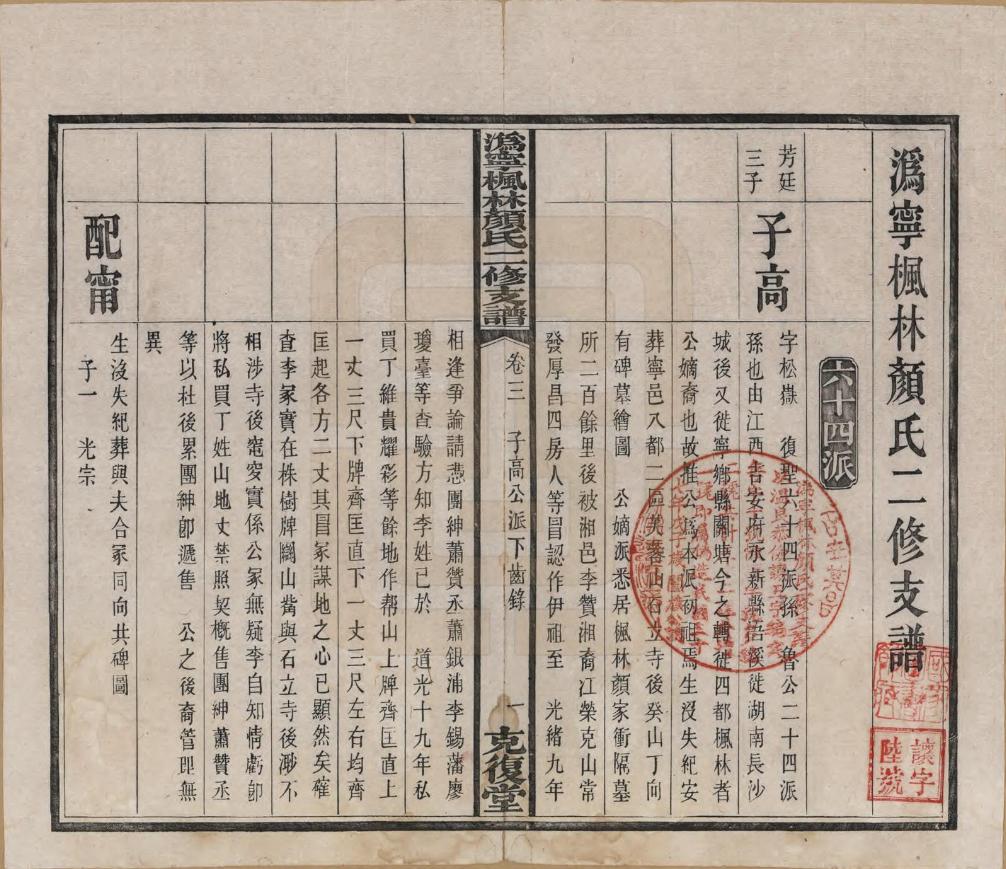 溈寧楓林顏氏二修支譜
六十四派
芳廷
三子
子高
字松嶽 復聖六十四派孫 魯公二十四派
孫也由江西吉安府永新縣浯溪徙湖南長沙
城後又徙寧鄉縣關塘今之轉徙四都楓林者
公嫡裔也故推公為本派初祖焉生沒失紀安
葬寧邑八都二區芙蓉山石立寺後癸山丁向
有碑墓繪圖 公嫡派悉居楓林顏家衝隔墓
所二百餘里後被湘邑李贊湘裔江榮克山常
發厚昌四房人等冒認作伊祖至 光緒九年
溈寧楓林顏氏二修支譜
卷三 子高公派下齒錄
一
克復堂
相逢爭論請憑團紳蕭贊丞蕭銀浦李錫藩廖
瓊臺等查驗方知李姓已於 道光十九年私
買丁維貴耀彩等餘地作帮山上牌齊匡直上
一丈三尺下牌齊匡直下一丈三尺左右均齊
匡起各方二丈其冒家謀地之心已顯然矣確
查李家實在株樹牌關山觜與石立寺後渺不
相涉寺後窀穸實係公冢無疑李自知情虧卽
將私買丁姓山地丈禁照契概售團紳蕭贊丞
等以杜後累團紳卽遞售 公之後裔管理無
異
配甯
生沒失紀葬與夫合冢同向共碑圖
子一 光宗
讓字
陸號